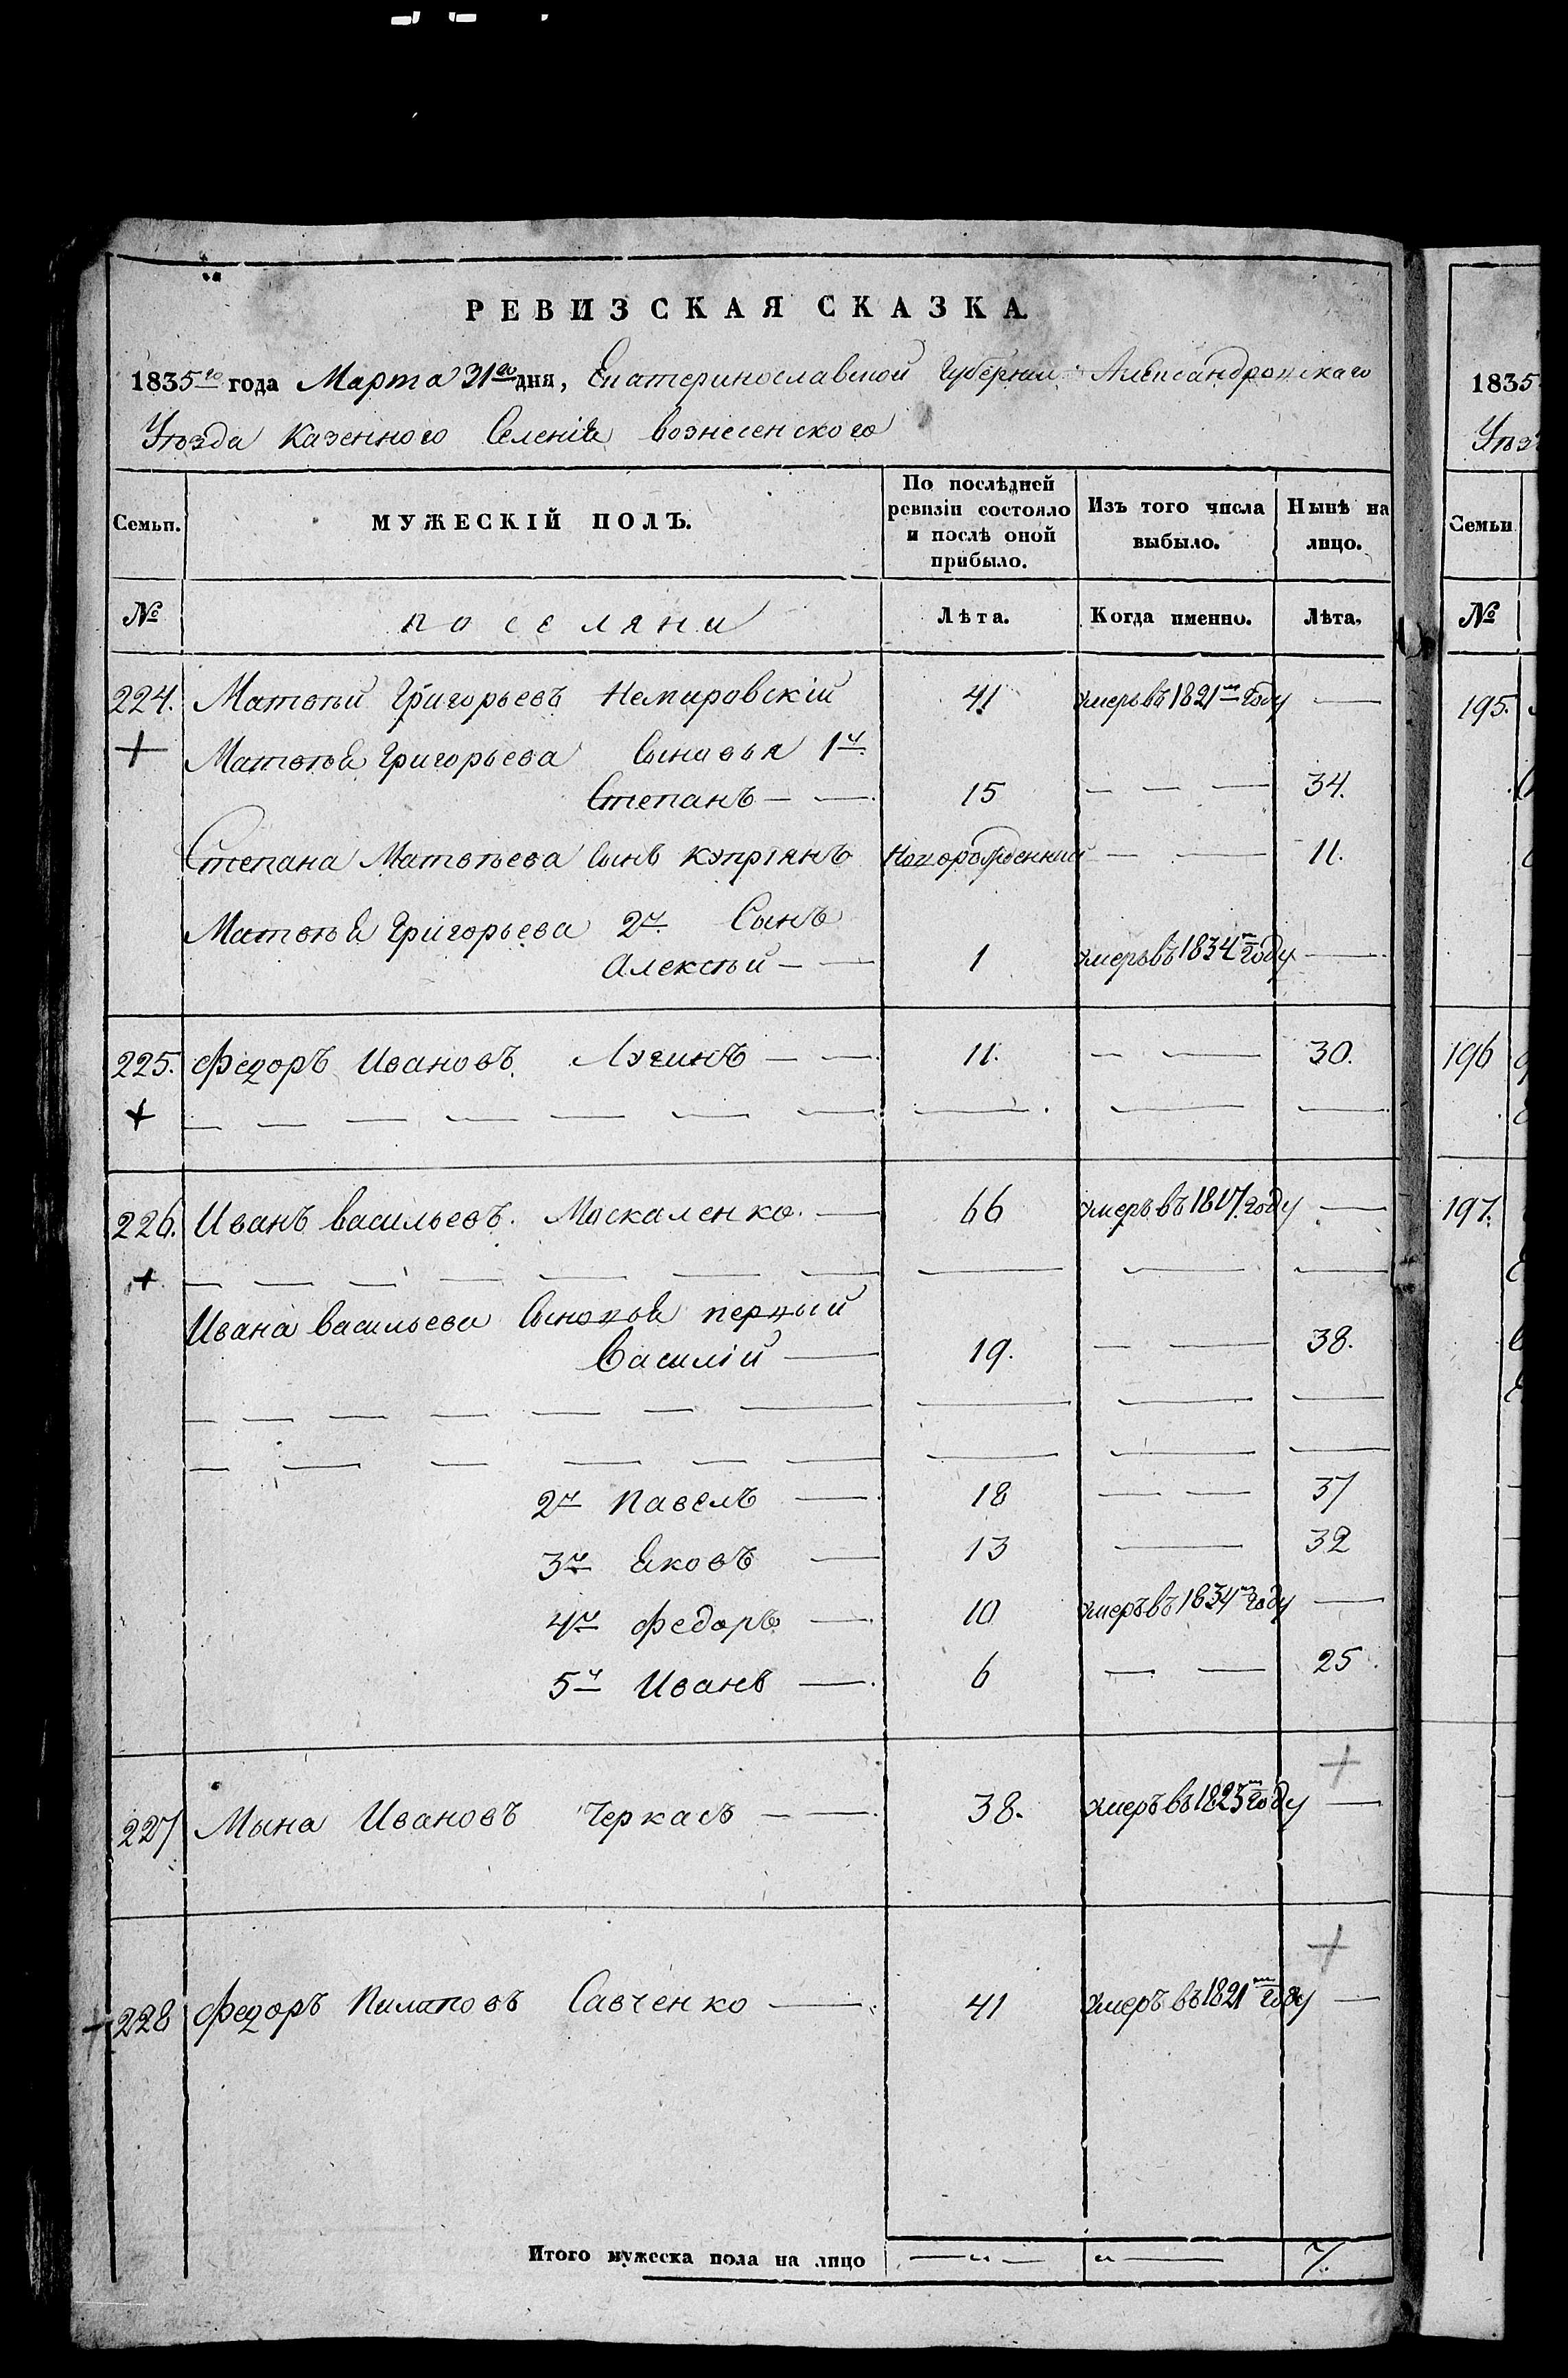 РЕВИЗСКАЯ СКАЗКА
1835го года Марта 31го дня, Екатеринославской Губернии Александровскаго
Уѣзда Казенного Селенія вознесенского
Семьи. МУЖЕСКІЙ ПОЛЪ. По послѣдней ревизіи состояло и послѣ оной прибыло. Изъ того числа выбыло. Нынѣ на лицо.
№ поселяни Лѣта. Когда именно. Лѣта.
224. Матвѣй Григорьевъ Немировскій 41 умеръ въ 1821м году —
+ Матвѣя Григорьева Сыновья 1й
Степанъ — — 15 — — — 34.
Степана Матвѣева Сынъ Купріянъ Новорожденний — — 11.
Матвѣя Григорьева 2й Сынъ
Алексѣй — — 1 умеръ въ 1834м году —
225. Федоръ Ивановъ — — 11. — — 30.
+ — — — — — — — — — —
226. Иванъ васильевъ. Москаленко. — 66 умеръ въ 1817. году —
+ — — — — — — — — — —
Ивана васильева Сыновья первый
Василій — 19. — — 38.
— — — — — — — — — —
— — — — — — — — —
2й Павелъ — 18 — — 37
3й Яковъ — 13 — 32
4й Федоръ — 10 умеръ въ 1834м году —
5й Иванъ — 6 — — 25
+
227 Мына Ивановъ Черкасъ — — 38. умеръ въ 1823м году —
+
+ 228 Федоръ Пилиповъ Савченко — 41 умеръ въ 1821м году —
Итого мужеска пола на лицо — „ — „ — 7.
1835
Уѣз
Семьи
№
195.
196
197.